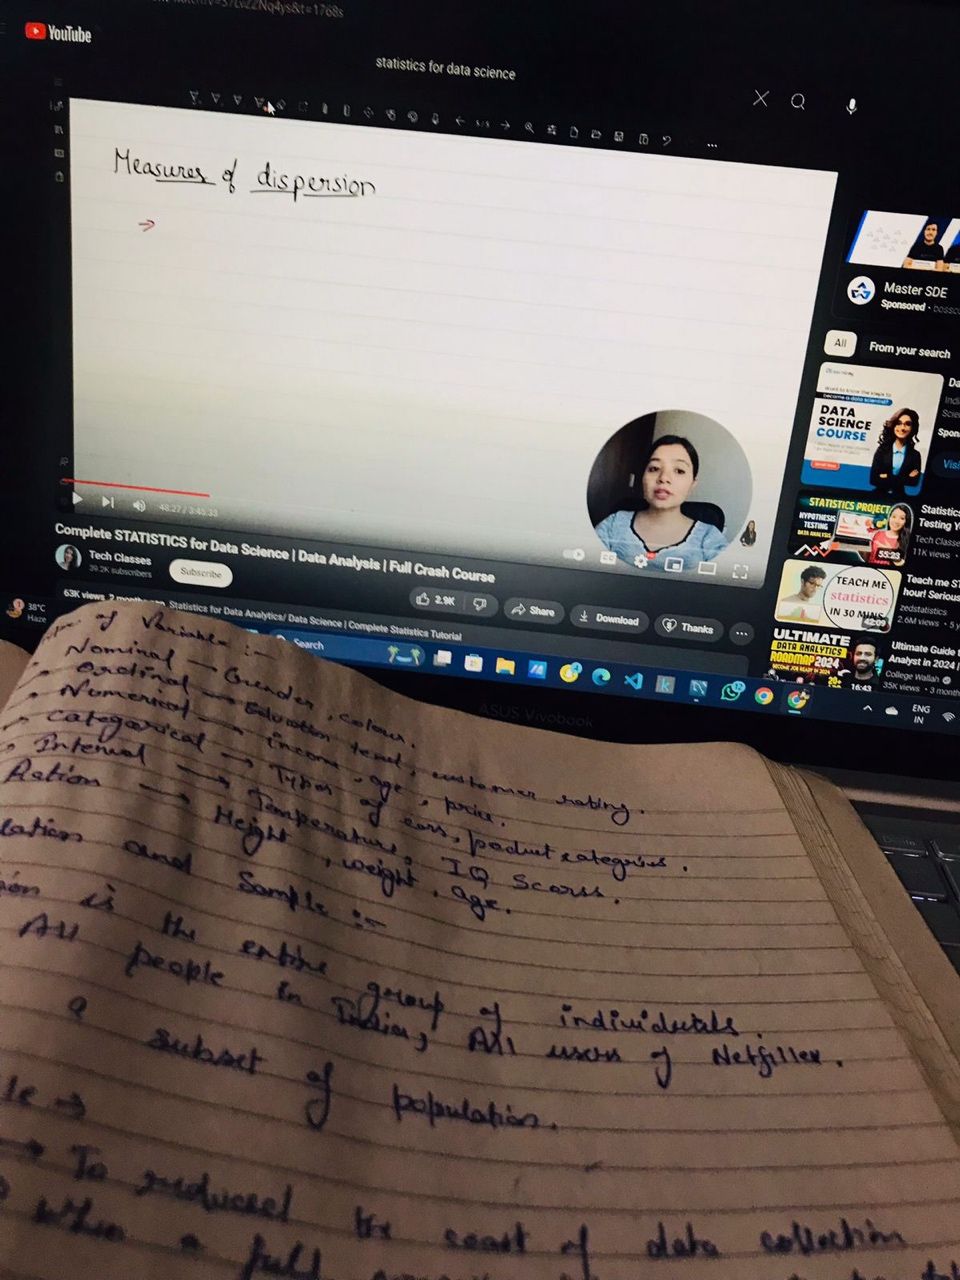 YouTube
statistics for data science
Measures of dispersion
→
Master SDE
Sponsored
All
From your search
DATA
SCIENCE
COURSE
STATISTICS PROJECT
HYPOTHESIS
TESTING
DATA ANALYSIS
55:23
Statistics
Testing
Tech Classe
11K views
TEACH ME
statistics
IN 30 MINS
42:09
Teach me
hour! Serious
zedstatistics
2.6M views
ULTIMATE
DATA ANALYTICS
ROADMAP 2024
16:43
Ultimate Guide
Analyst in 2024 |
College Wallah
35K views
48:27 / 3:45:33
Complete STATISTICS for Data Science | Data Analysis | Full Crash Course
Tech Classes
39.2K subscribers
Subscribe
2.9K
Share
Download
Thanks
63K views 2 months ago Statistics for Data Analytics/ Data Science | Complete Statistics Tutorial
38°C
Haze
Search
ENG
IN
ASUS Vivobook
of Variable :-
Nominal → Gender, colour.
Ordinal → Education level, customer rating.
Numerical → income, age, price.
Categorical → Types of cars, product categories.
Interval → Temperature, IQ Scorss.
Ration → Height, weight, age.
lation and Sample :-
is the entire group of individuals.
All people in India, All users of Netfillex.
a subset of population.
le →
→ To reduced the coast of data collection
When a full